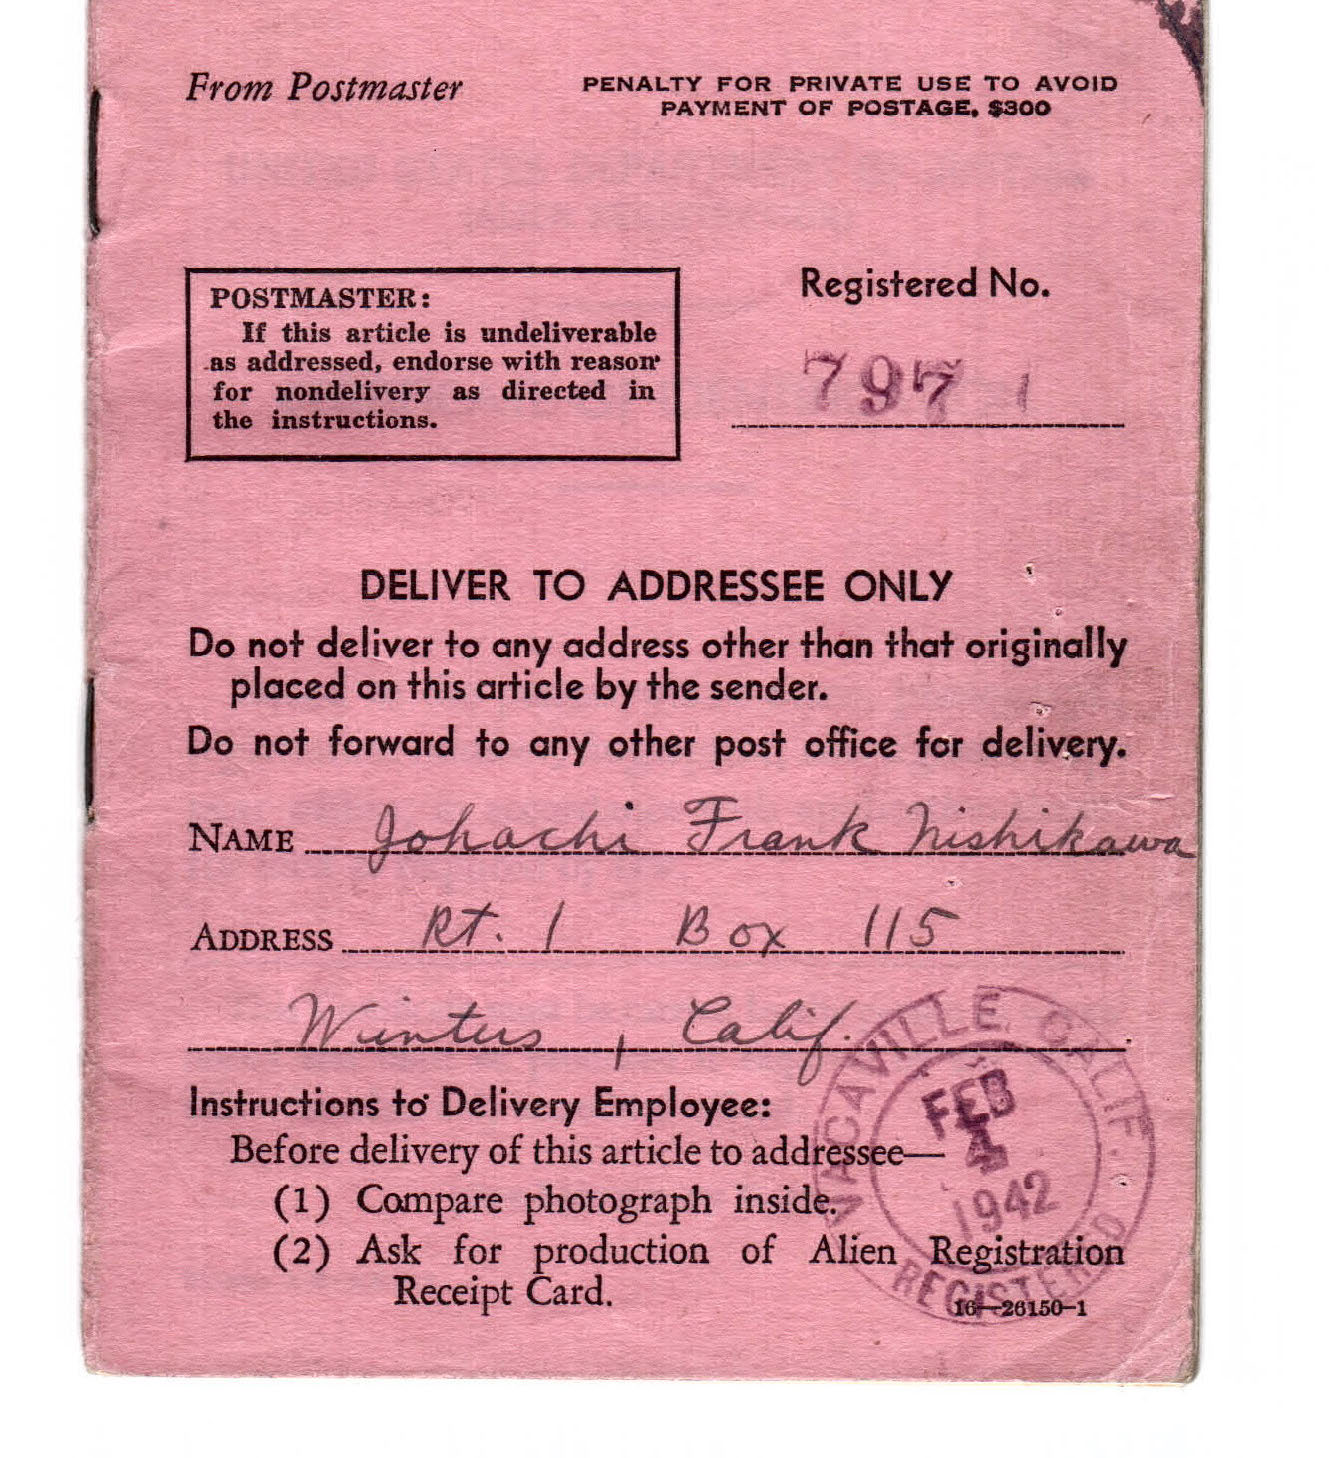 From Postmaster
PENALTY FOR PRIVATE USE TO AVOID
PAYMENT OF POSTAGE, $300
POSTMASTER:
If this article is undeliverable
as addressed, endorse with reason
for nondelivery as directed in
the instructions.
Registered No.
797 1
DELIVER TO ADDRESSEE ONLY
Do not deliver to any address other than that originally
placed on this article by the sender.
Do not forward to any other post office for delivery.
NAME Johachi Frank Nishikawa
ADDRESS Rt. 1 Box 115
Winters, Calif.
Instructions to Delivery Employee:
Before delivery of this article to addressee—
(1) Compare photograph inside.
(2) Ask for production of Alien Registration
Receipt Card.
16—26150-1
VACAVILLE, CALIF.
FEB
4
1942
REGISTERED